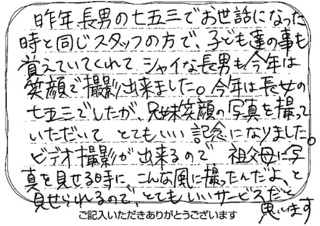 昨年長男の七五三でお世話になった
時と同じスタッフの方で、子ども達の事も
覚えていてくれて、シャイな長男も今年は
笑顔で撮影出来ました。今年は長女の
七五三でしたが、兄妹笑顔の写真を撮って
いただいて とてもいい記念になりました。
ビデオ撮影が出来るので 祖父母に写
真を見せる時に こんな風に撮ったんだよ、と
見せられるので、とてもいいサービスだと
思います
ご記入いただきありがとうございます